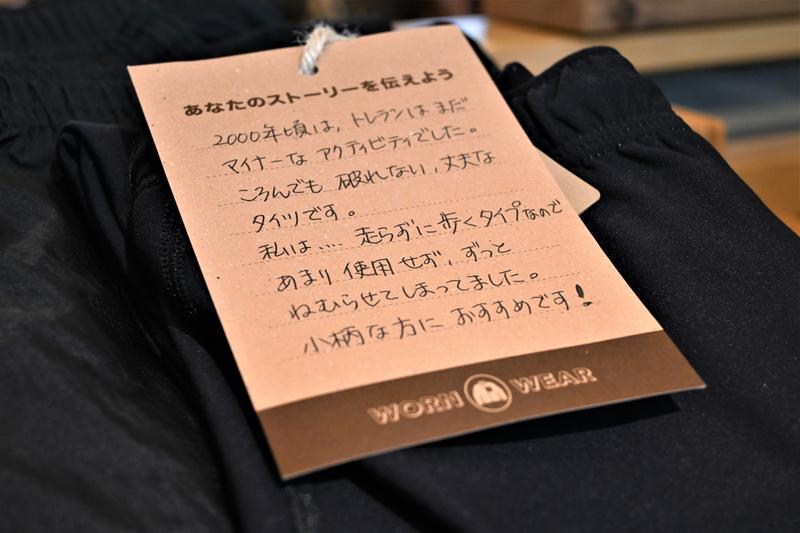 あなたのストーリーを伝えよう
2000年頃は，トレランはまだ
マイナーな アクティビティでした。
ころんでも 破れない，丈夫な
タイツです。
私は…. 走らずに歩くタイプなので
あまり 使用せず，ずっと
ねむらせてしまってました。
小柄な方に おすすめです！
WORN WEAR